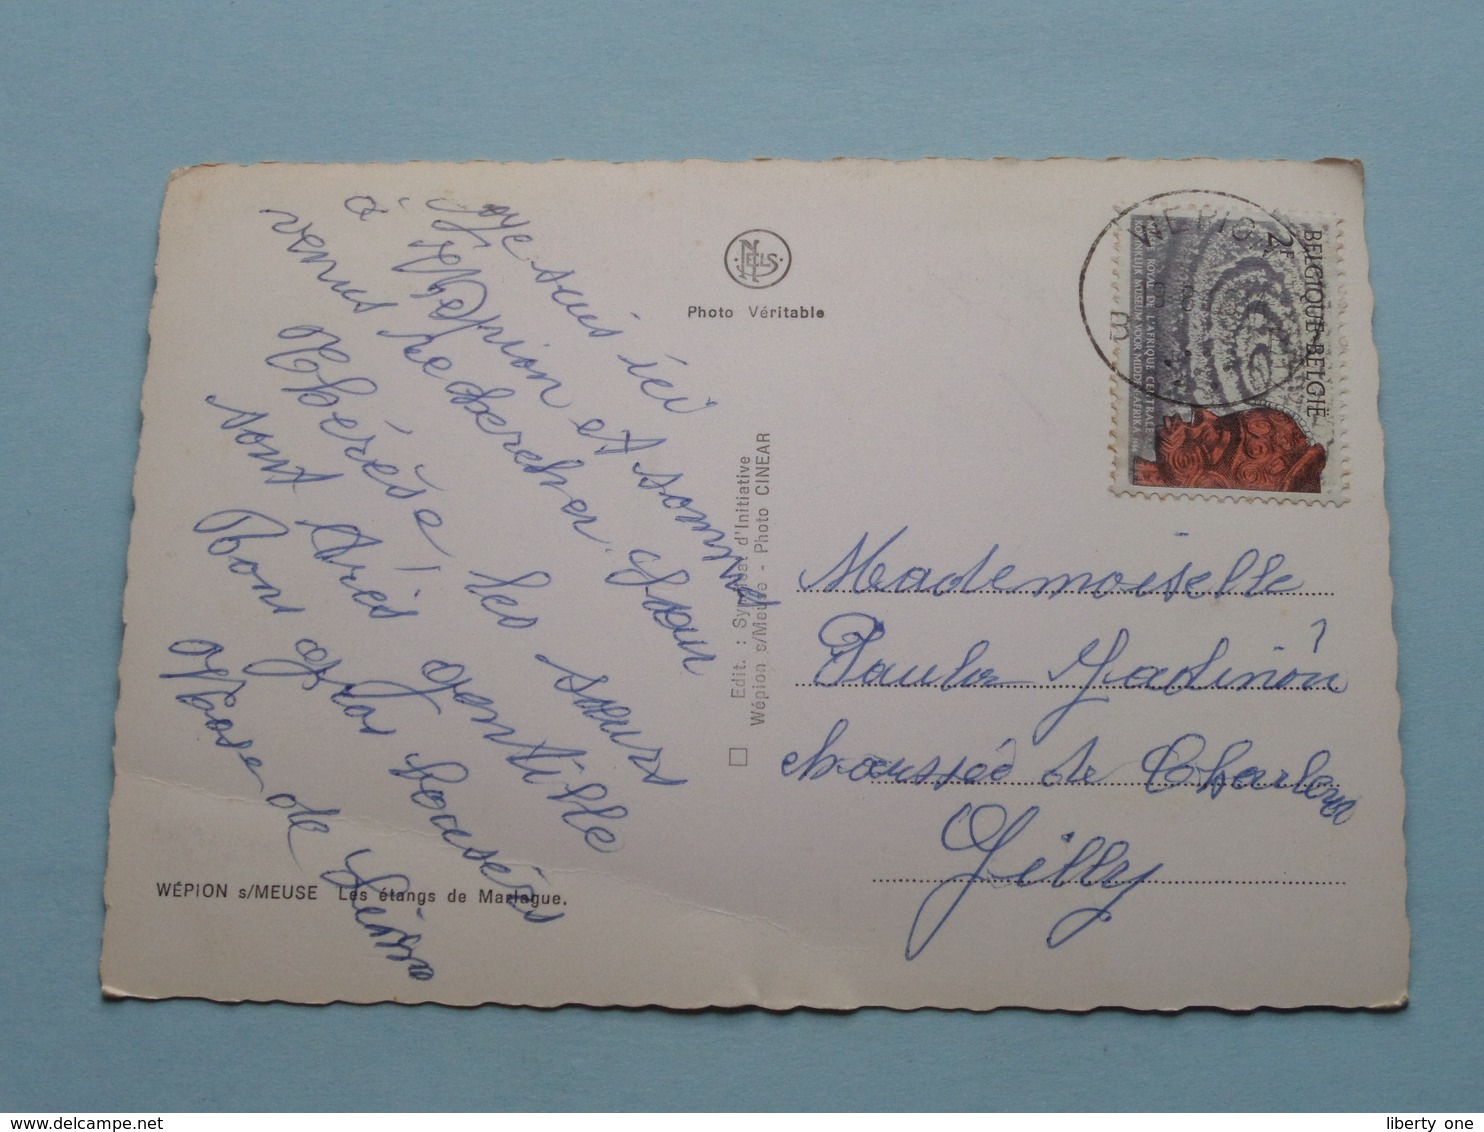 Je suis ici
à Wépion et somme
venus rechercher Sœur
Thérèse! les sœurs
sont très gentille
Bons gros baisers
Rose de
NELS
Photo Véritable
Edit. : Syndicat d'Initiative
Wépion s/Meuse - Photo CINEAR
WEPION
BELGIQUE-BELGIË
2F
ROYAL DE L'AFRIQUE CENTRALE
KONINKLIJK MUSEUM VOOR MIDDEN-AFRIKA
Mademoiselle
Paula
chaussée de Charleroi
Gilly
WÉPION s/MEUSE Les étangs de Marlague.
liberty one